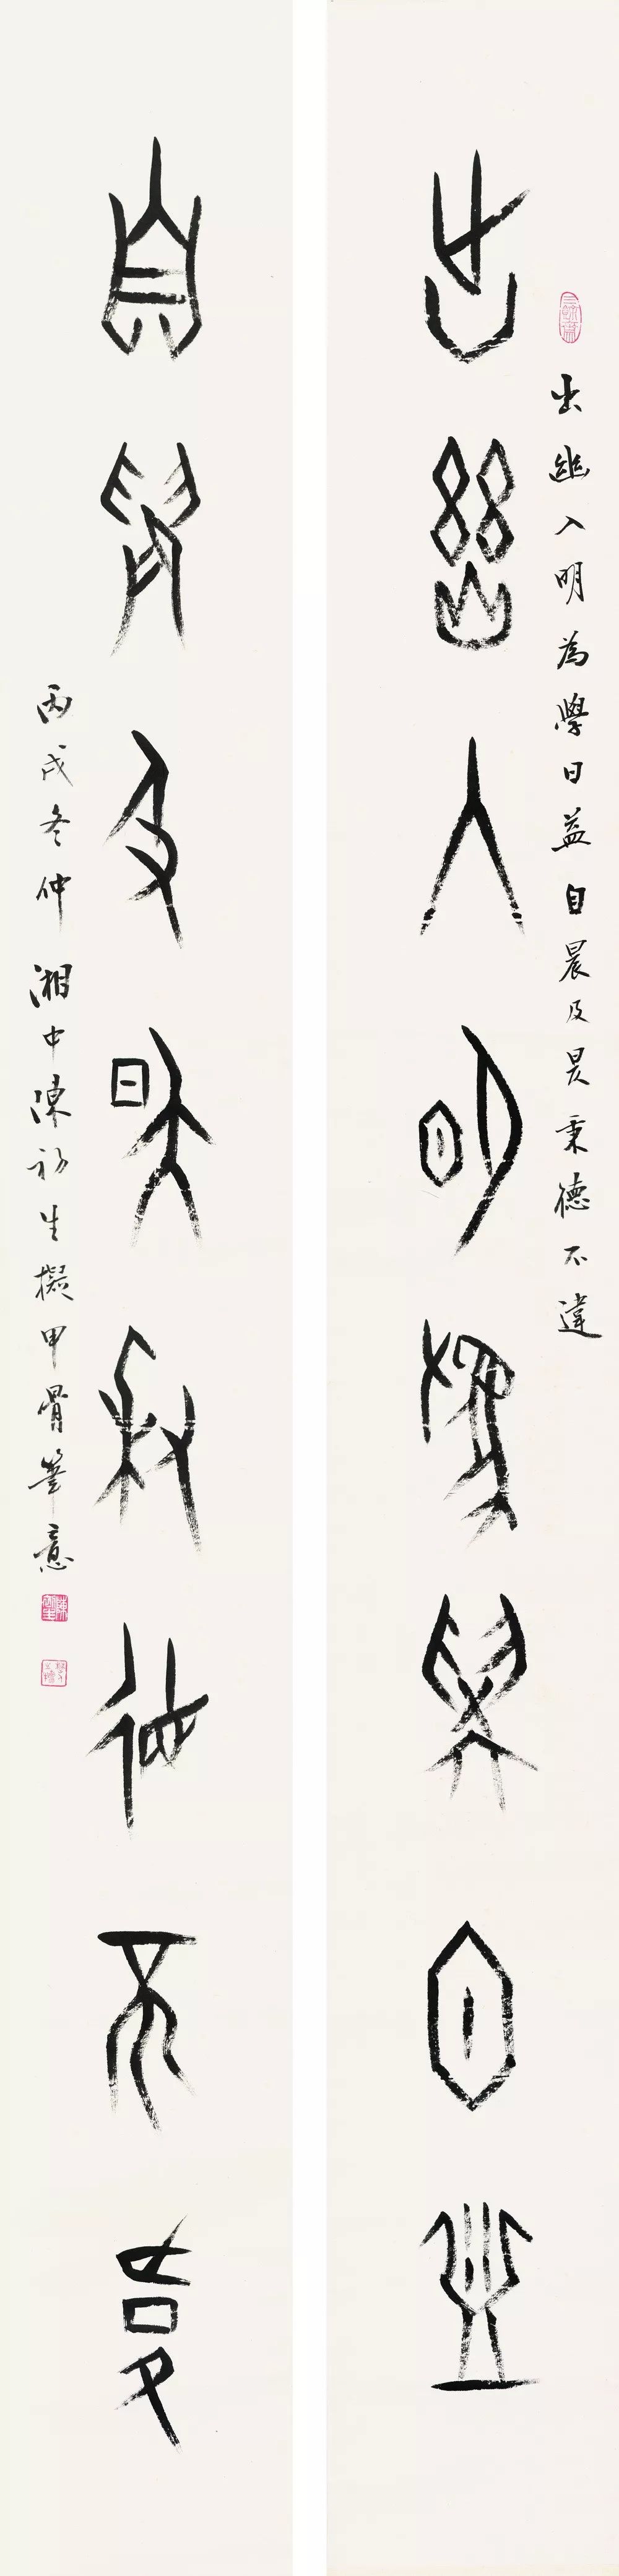 出幽入明為學日益自晨及昃秉德不違
出幽入明為學日益
自晨及昃秉德不違
丙戌冬仲湘中陳初生擬甲骨筆意